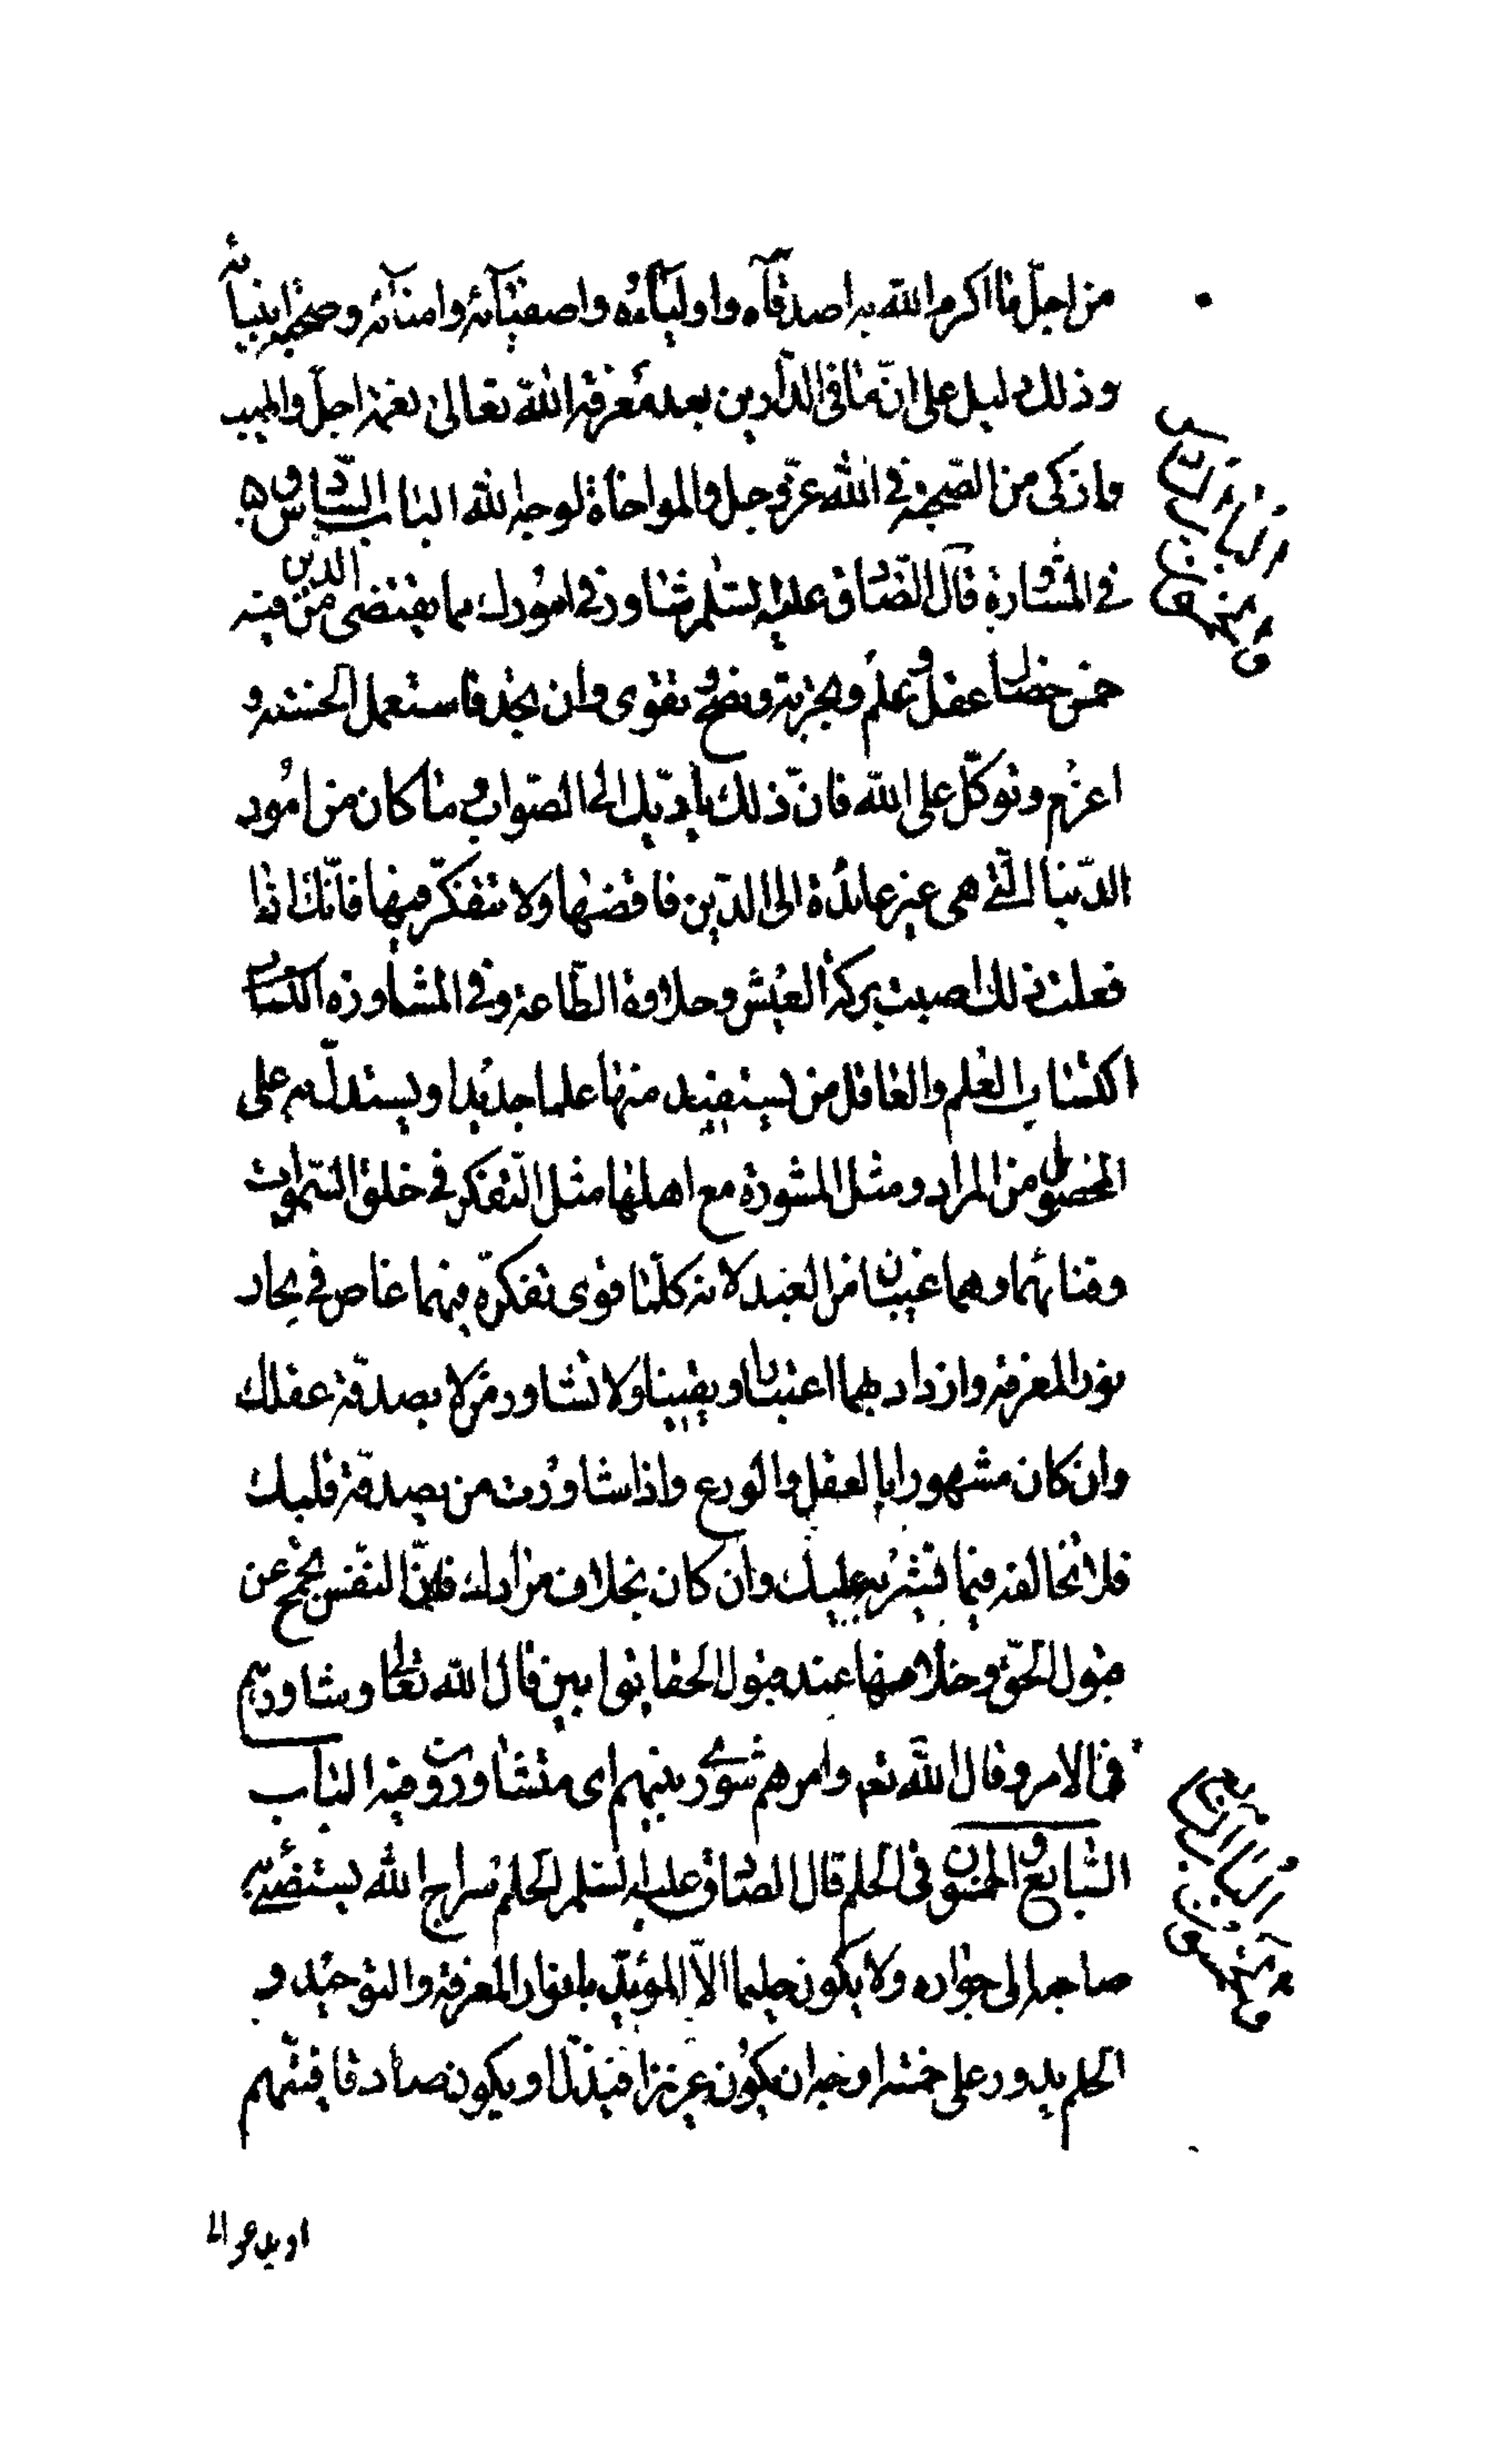 من اجلّ ما اكرم الله به اصدقآه واوليآءه واصفيآئه وامنآئه وصحبة انبيائه
وذلك دليل على انّ ما فى الدّارين بعد معرفة الله تعالى نعمة اجلّ واطيب
وازكى من الصّحبة فى الله عزّ وجل والمواخاة لوجه الله الباب السّادس و ۵
فى المشاورة قال الصّادق عليه السّلم شاور فى امورك مما يقتضى الدين من فيه
خمس خصال عقل وعلم وتجربة ونصح وتقوى وان تجد فاستعمل الخمسة و
اعزم وتوكّل على الله فانّ ذلك يادّيك الى الصّواب وما كان من امور
الدّنيا الّتى هى غير عائدة الى الدّين فاقضها ولا تتفكّر فيها فانّك اذا
فعلت ذلك اصبت بركة العيش وحلاوة الطّاعة وفى المشاورة اكتساب
اكتساب العلم والعاقل من يستفيد منها علما جديدا ويستدلّ به على
المحصول من المراد ومثل المشورة مع اهلها مثل التّفكر فى خلق السّموات
وفنائهما وهما غيبان من العبد لانه كلّما قوى تفكّره فيهما غاص فى بحار
نور المعرفة وازداد بهما اعتبارا ويقينا ولا تشاور من لا يصدّقه عقلك
وان كان مشهورا بالعقل والورع واذا شاورت من يصدقه قلبك
فلا تخالفه فيما يشير به عليك وان كان بخلاف مرادك فانّ النّفس تجمح عن
قبول الحقّ وخلافها عند قبول الحقايق ابين قال الله تعالى وشاورهم
فى الامر وقال الله تعه وامرهم شورى بينهم اى متشاورون فيه الباب
السّابع والخمسون فى الحلم قال الصّادق عليه السّلم الحلم سراج الله يستضئ به
صاحبه الى جواره ولا يكون حليما الاّ المؤيّد بانوار المعرفة والتوحيد و
الحلم يدور على خمسة اوجه ان يكون عزيزا فيذلّ او يكون صادقا فيتّهم